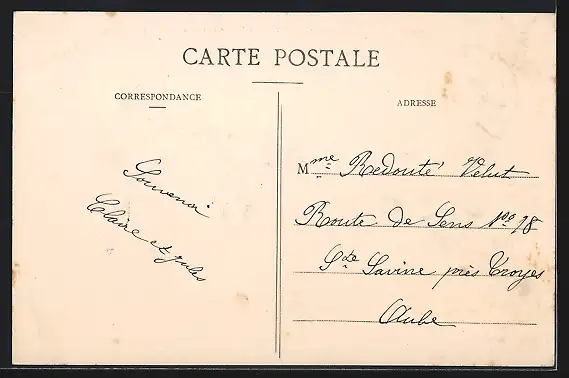 CARTE POSTALE
CORRESPONDANCE
ADRESSE
Souvenir
Claire et Jules
Mme Redouté Velut
Route de Sens No 18
Ste Savine près Troyes
Aube